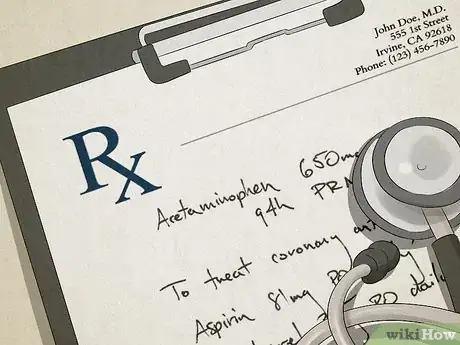 John Doe, M.D.
555 1st Street
Irvine, CA 92618
Phone: (123) 456-7890
Rx
Acetaminophen 650mg
q4h PRN
To treat coronary
Aspirin 81mg PO
PO daily
wikiHow